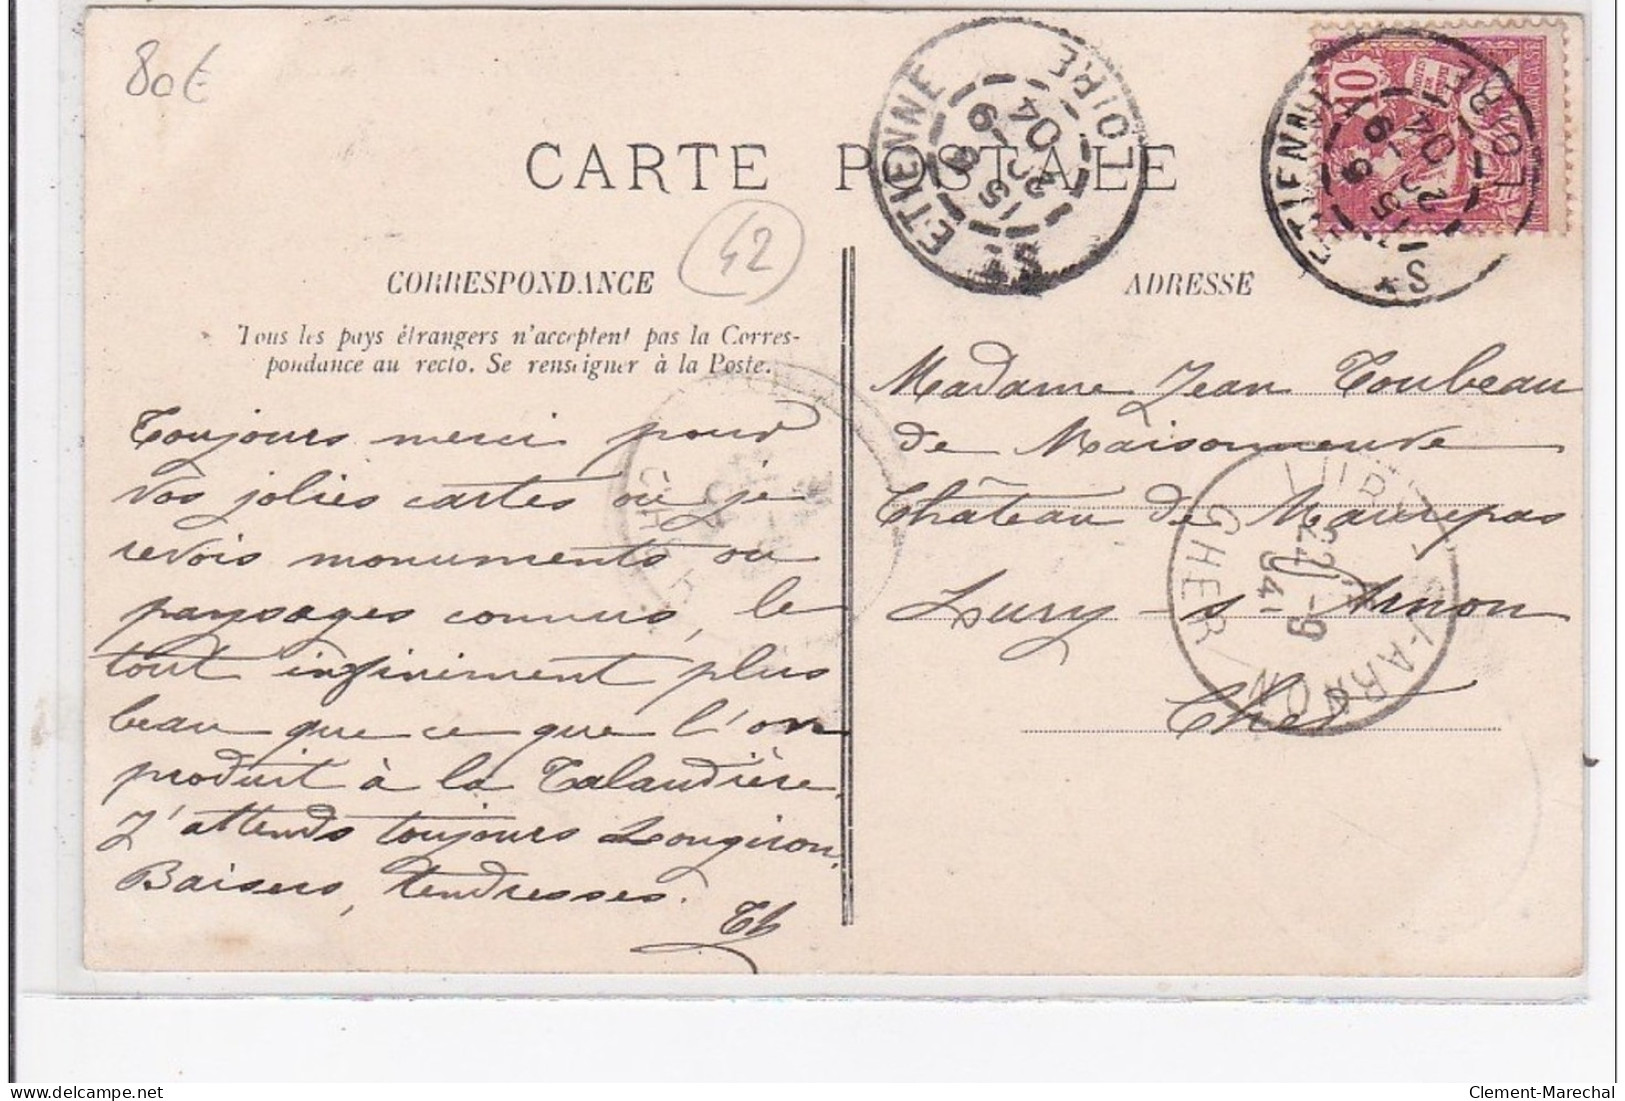 80€
CARTE POSTALE
42
CORRESPONDANCE
Tous les pays étrangers n'acceptent pas la Corres-
pondance au recto. Se renseigner à la Poste.
Toujours merci pour
vos jolies cartes où je
revois monuments ou
paysages connus, le
tout infiniment plus
beau que ce que l'on
produit à la Talaudière.
J'attends toujours Lougiron.
Baisers, tendresses.
Th
ST ETIENNE LOIRE
15
23
9
04
10
ST ETIENNE LOIRE
15
23
9
04
ADRESSE
Madame Jean Toubeau
de Maisonneuve
Château de Maurepas
Lury-s-Arnon
Cher
LURY-S-ARNON
CHER
24 -9
04
CHER
Clement-Marechal